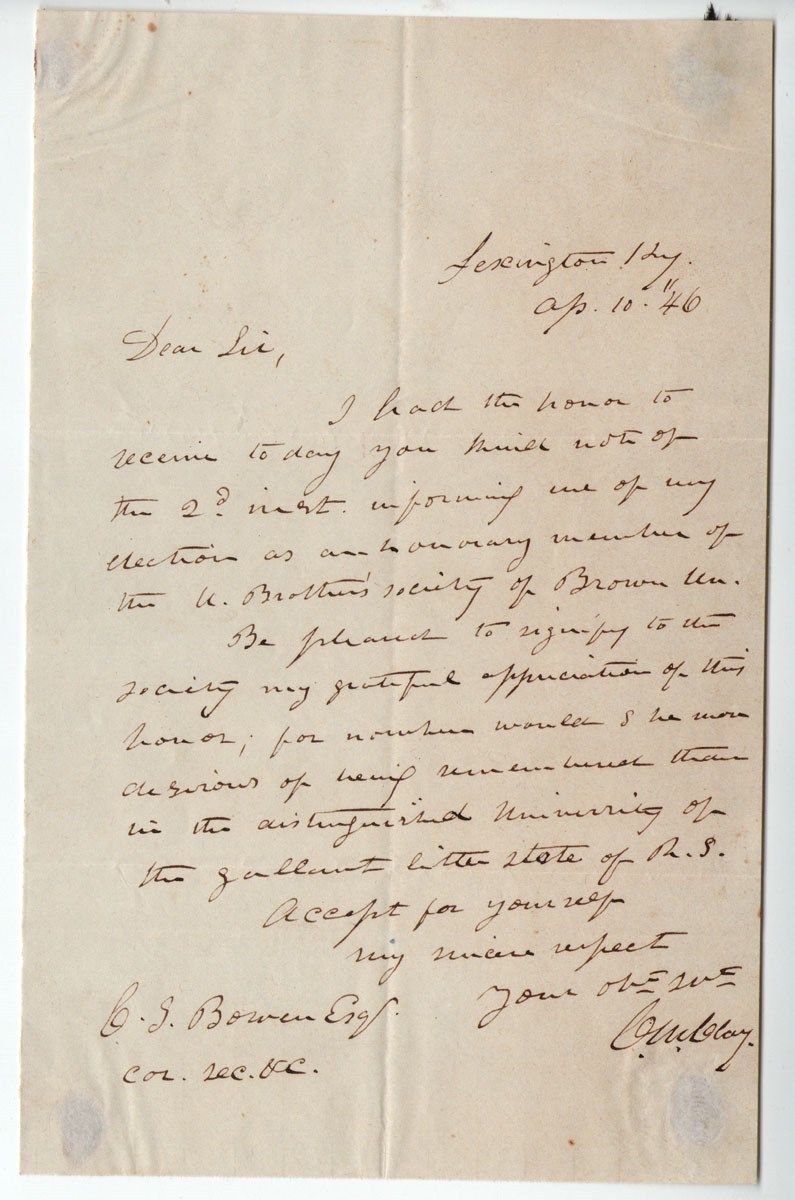 Lexington Ky.
Ap. 10. "46
Dear Sir,
I had the honor to
receive to day you kind note of
the 2d. inst. informing me of my
election as an honorary member of
the U. Brothers' society of Brown Un.
Be pleased to signify to the
society my grateful appreciation of this
honor; for nowhere would I be more
desirous of being remembered than
in the distinguished University of
the gallant little state of R. I.
Accept for yourself
my sincere respect
Your obt svt
C. M. Clay.
C. S. Bowen Esqr.
cor. sec. &c.